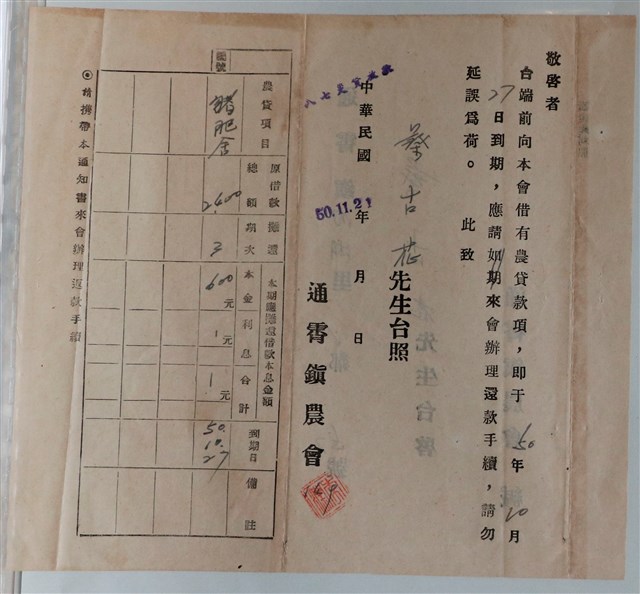 敬啓者
台端前向本會借有農貸款項，即于50年10月
27日到期，應請如期來會辦理還款手續，請勿
延誤爲荷。　此致
蔡古　先生台照
中華民國　年　月　日
50.11.21
通霄鎮農會
編號
農貸項目　猪肥舍
原借款總額　2,400
攤還期次　3
本期應攤還借款本息金額
本金　600元
利息　元
合計　元
到期日　50.10.27
備註
⊙請携帶本通知書來會辦理還款手續